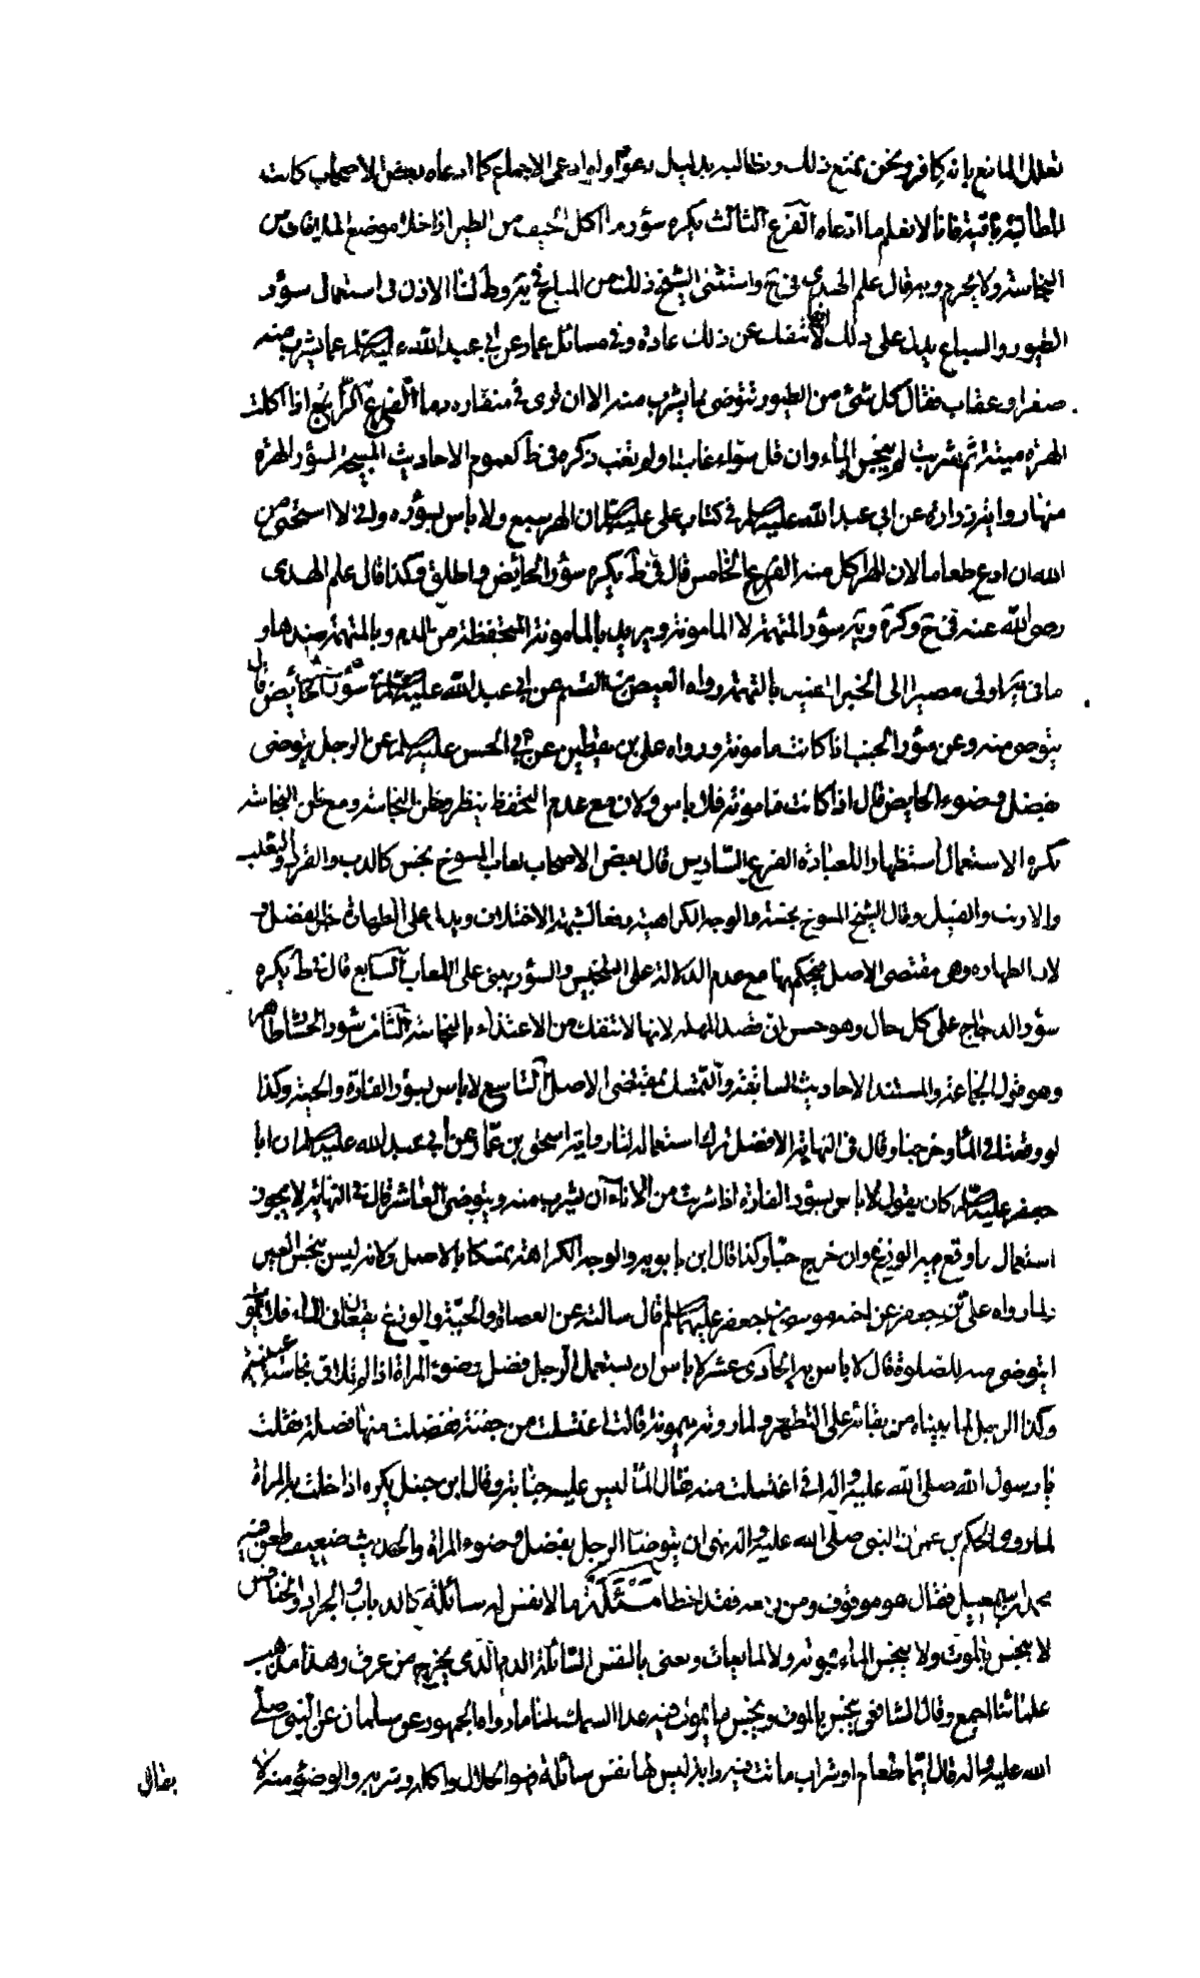 تعلل المانع بانه كافر ونحن نمنع ذلك ونطالبه بدليل دعواه ولو ادعى الاجماع كما ادعاه بعض الاصحاب كانت
المطالبة باقية فانا لا نعلم ما ادعاه الفرع الثالث يكره سؤر ما اكل الجيف من الطير اذا خلا موضع الملاقاة من
النجاسة ولا يحرم وبه قال علم الهدى في واستثنى الشيخ ذلك من المباح في يه وط لنا الاذن في استعمال سؤر
الطيور والسباع يدل على ذلك لانها لا تنفك عن ذلك عادة وفي مسائل عمار عن ابي عبد الله عليه السلام عما يشرب منه
صقر او عقاب فقال كل شئ من الطيور تتوضى بما يشرب منه الا ان ترى في منقاره دما الفرع الرابع اذا اكلت
الهرة ميتة ثم شربت لم ينجس الماء وان قل سواء غابت او لم تغب ذكره في ط لعموم الاحاديث المبيحة لسؤر الهرة
منها رواية زرارة عن ابي عبد الله عليه السلام في كتاب علي عليه السلام ان الهر سبع ولا باس بسؤره واني لا استحيى من
الله ان ادع طعاما لان الهر اكل منه الفرع الخامس قال في ط يكره سؤر الحائض واطلق وكذا قال علم الهدى
رضى الله عنه في وكره في يه سؤر المتهمة لا المامونة ويريد بالمامونة المتحفظة من الدم وبالمتهمة ضدها و
ما في يه اولى مصيرا الى الخبر اعنى بالتهمة رواه العيص بن القسم عن ابي عبد الله عليه السلام سؤر الحائض قال
يتوضى منه وعن سؤر الجنب اذا كانت مامونة ورواه علي بن يقطين عن ابي الحسن عليه السلام عن الرجل يتوضى
بفضل وضوء الحايض قال اذا كانت مامونة فلا باس ولان مع عدم التحفظ ينظر وظن النجاسة ومع ظن النجاسة
يكره الاستعمال استظهارا للعبادة الفرع السادس قال بعض الاصحاب لعاب المسوخ نجس كالدب والقرد والثعلب
والارنب والفيل وقال الشيخ المسوخ نجسة والوجه الكراهية رفعا لشبهة الاختلاف ويدل على الطهارة خبر الفضل و
لان الطهارة وهي مقتضى الاصل فيحكم بها مع عدم الدلالة على التنجيس والسؤر يبنى على اللعاب السابع قال في ط يكره
سؤر الدجاج على كل حال وهو حسن ان قصد المهملة لانها لا تنفك من الاغتذاء بالنجاسة الثامن سؤر الحشار طاهر
وهو قول الجماعة والمستند الاحاديث السابقة والتمسك بمقتضى الاصل التاسع لا باس بسؤر الفارة والحية وكذا
لو وقعتا في الماء وخرجتا وقال في النهاية الافضل ترك استعماله لنا رواية اسحق بن عمار عن ابي عبد الله عليه السلام ان ابا
جعفر عليه السلام كان يقول لا باس بسؤر الفارة اذا شربت من الاناء ان يشرب منه ويتوضى العاشر قال في النهاية لا يجوز
استعمال ما وقع فيه الوزغ وان خرج حيا وكذا قال ابن بابويه والوجه الكراهة تمسكا بالاصل ولانه ليس بنجس العين
ولما رواه علي بن جعفر عن اخيه موسى بن جعفر عليهما السلام قال سالته عن العصاة والحية والوزغ يقعان في الماء فلا يموت
ايتوضى منه للصلوة قال لا باس به الحادى عشر لا باس ان يستعمل الرجل فضل وضوء المراة اذا لم تلاق نجاسة عينية
وكذا الرجل لما بيناه من بقائه على التطهير ولما روته ميمونة قالت اغتسلت من جفنة ففضلت منها فضلة فقلت
يا رسول الله صلى الله عليه واله اني اغتسلت منه فقال الماء ليس عليه جنابة وقال ابن حنبل يكره اذا خلت به المراة
لما روى الحكم بن عمر ان النبي صلى الله عليه واله نهى ان يتوضا الرجل بفضل وضوء المراة والحديث ضعيف طعن فيه
محمد بن اسمعيل فقال هو موقوف ومن رفعه فقد اخطا مسئلة ما لا نفس له سائلة كالذباب والجراد والخنافس
لا ينجس بالموت ولا ينجس الماء بموته ولا المايعات ونعنى بالنفس السائلة الدم الذى يخرج من عرق وهذا مذهب
علمائنا اجمع وقال الشافعي ينجس بالموت وينجس ما يموت فيه عدا السمك لنا ما رواه الجمهور عن سلمان عن النبي صلى
الله عليه واله قال ايما طعام او شراب ماتت فيه دابة ليس لها نفس سائلة فهو الحلال واكله وشربه والوضوء منه لا
يقال